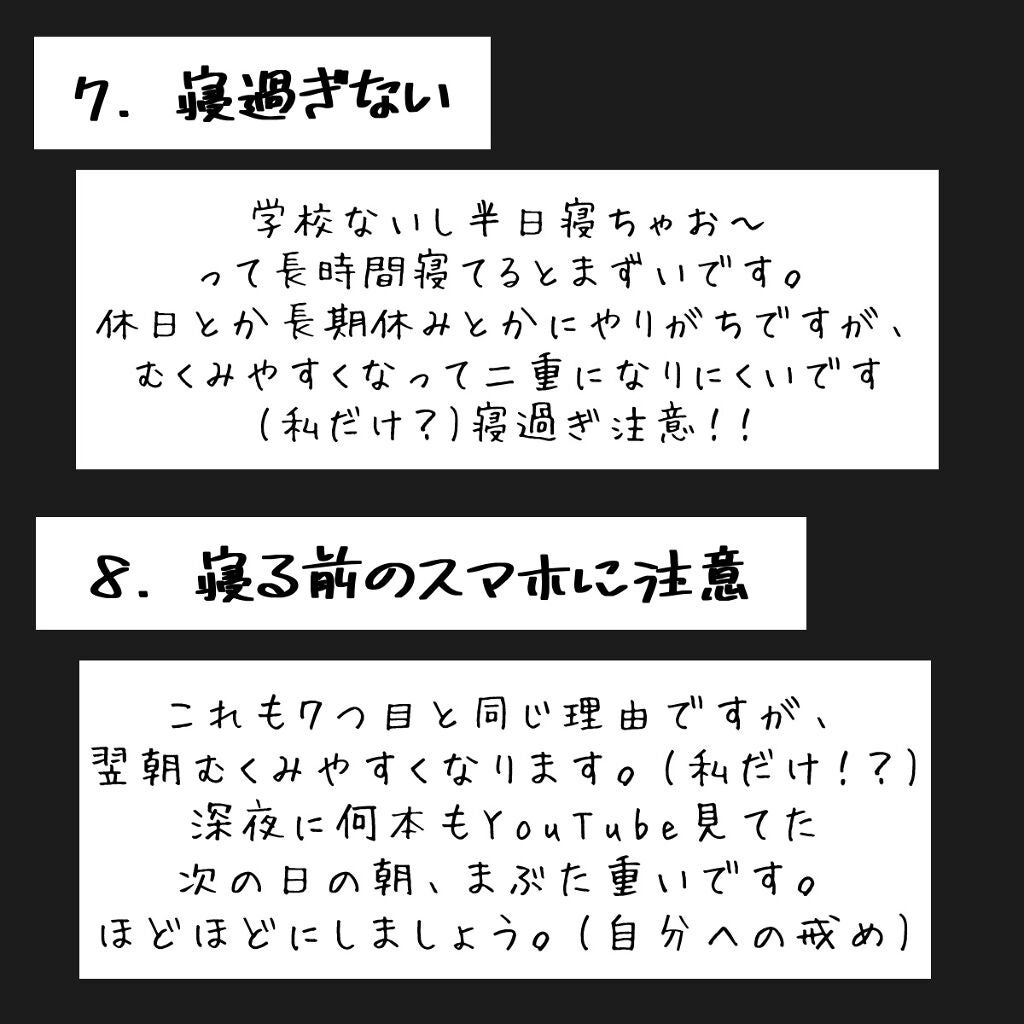 7. 寝過ぎない
学校ないし半日寝ちゃお〜
って長時間寝てるとまずいです。
休日とか長期休みとかにやりがちですが、
むくみやすくなって二重になりにくいです
(私だけ?)寝過ぎ注意!!
8. 寝る前のスマホに注意
これも7つ目と同じ理由ですが、
翌朝むくみやすくなります。(私だけ!?)
深夜に何本もYouTube見てた
次の日の朝、まぶた重いです。
ほどほどにしましょう。(自分への戒め)